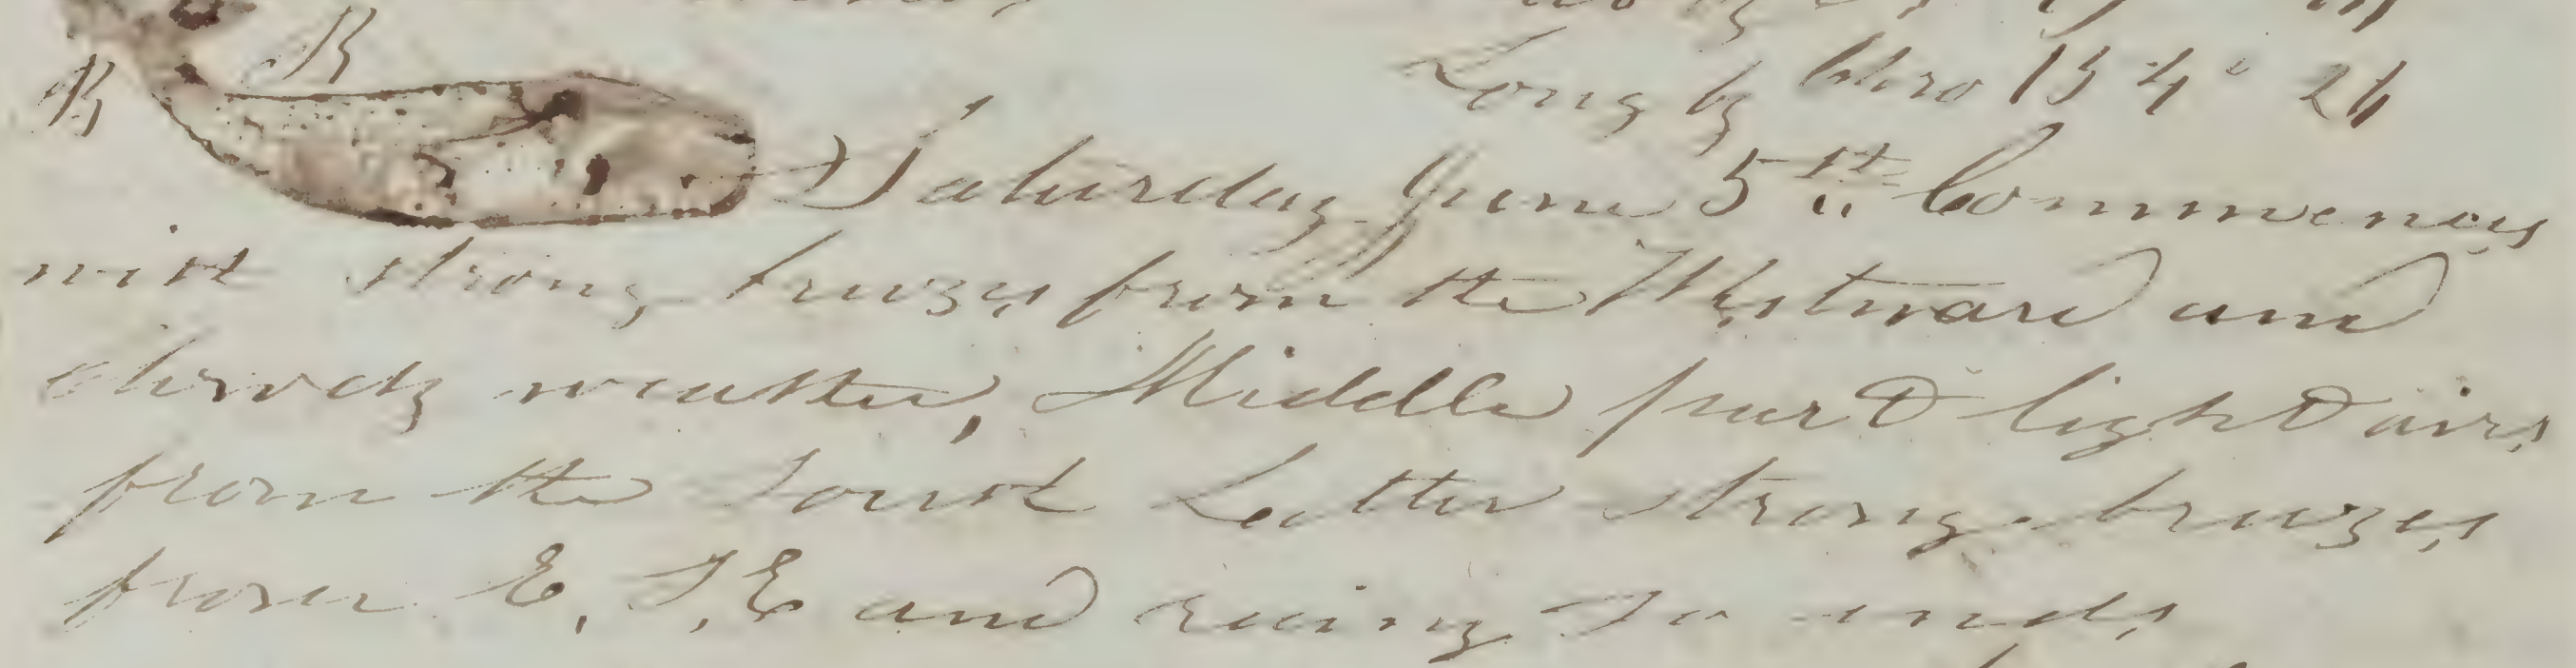 B
B
Long by Chro 154° 26
Saturday June 5th Commences
with strong breezes from the Westward and
cloudy weather, Middle part light airs
from the South Latter strong breezes
from E. S, E and raing So ends